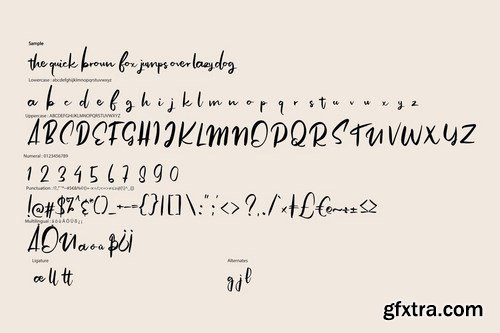 Sample
the quick brown fox jumps over lazy dog
Lowercase : abcdefghijklmnopqrstuvwxyz
a b c d e f g h i j k l m n o p q r s t u v w x y z
Uppercase : ABCDEFGHIJKLMNOPQRSTUVWXYZ
ABCDEFGHIJKLMNOPQRSTUVWXYZ
Numeral : 0123456789
1 2 3 4 5 6 7 8 9 0
Punctuation :
!@#$%^&*()_+-={}|[]\:";'<>?,./
Multilingual :
ÄÖÜäöüß
Ligature
Alternates
æ ll tt
g j l
gfxtra.com